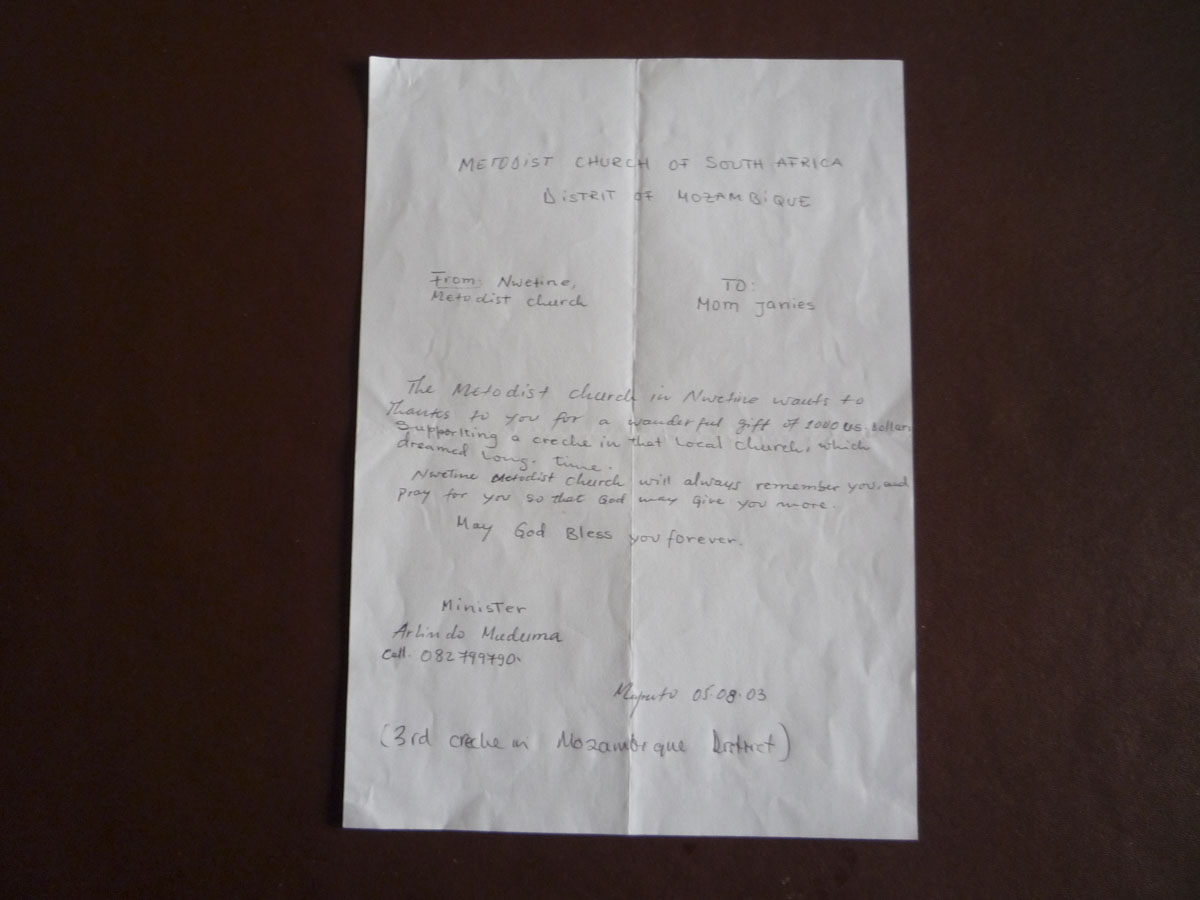 METODIST CHURCH OF SOUTH AFRICA
DISTRIT OF MOZAMBIQUE
From: Nwetine,
Metodist church
TO:
Mom Janies
The Metodist church in Nwetine wants to
Thanks to you for a wanderful gift of 1000 US. dollars
Supporting a creche in that Local church, which
dreamed Long. time.
Nwetine Metodist church will always remember you, and
pray for you so that God may give you more.
May God Bless you forever.
Minister
Arlindo Muduma
Cell. 082799790
Maputo 05.08.03
(3rd creche in Mozambique District)